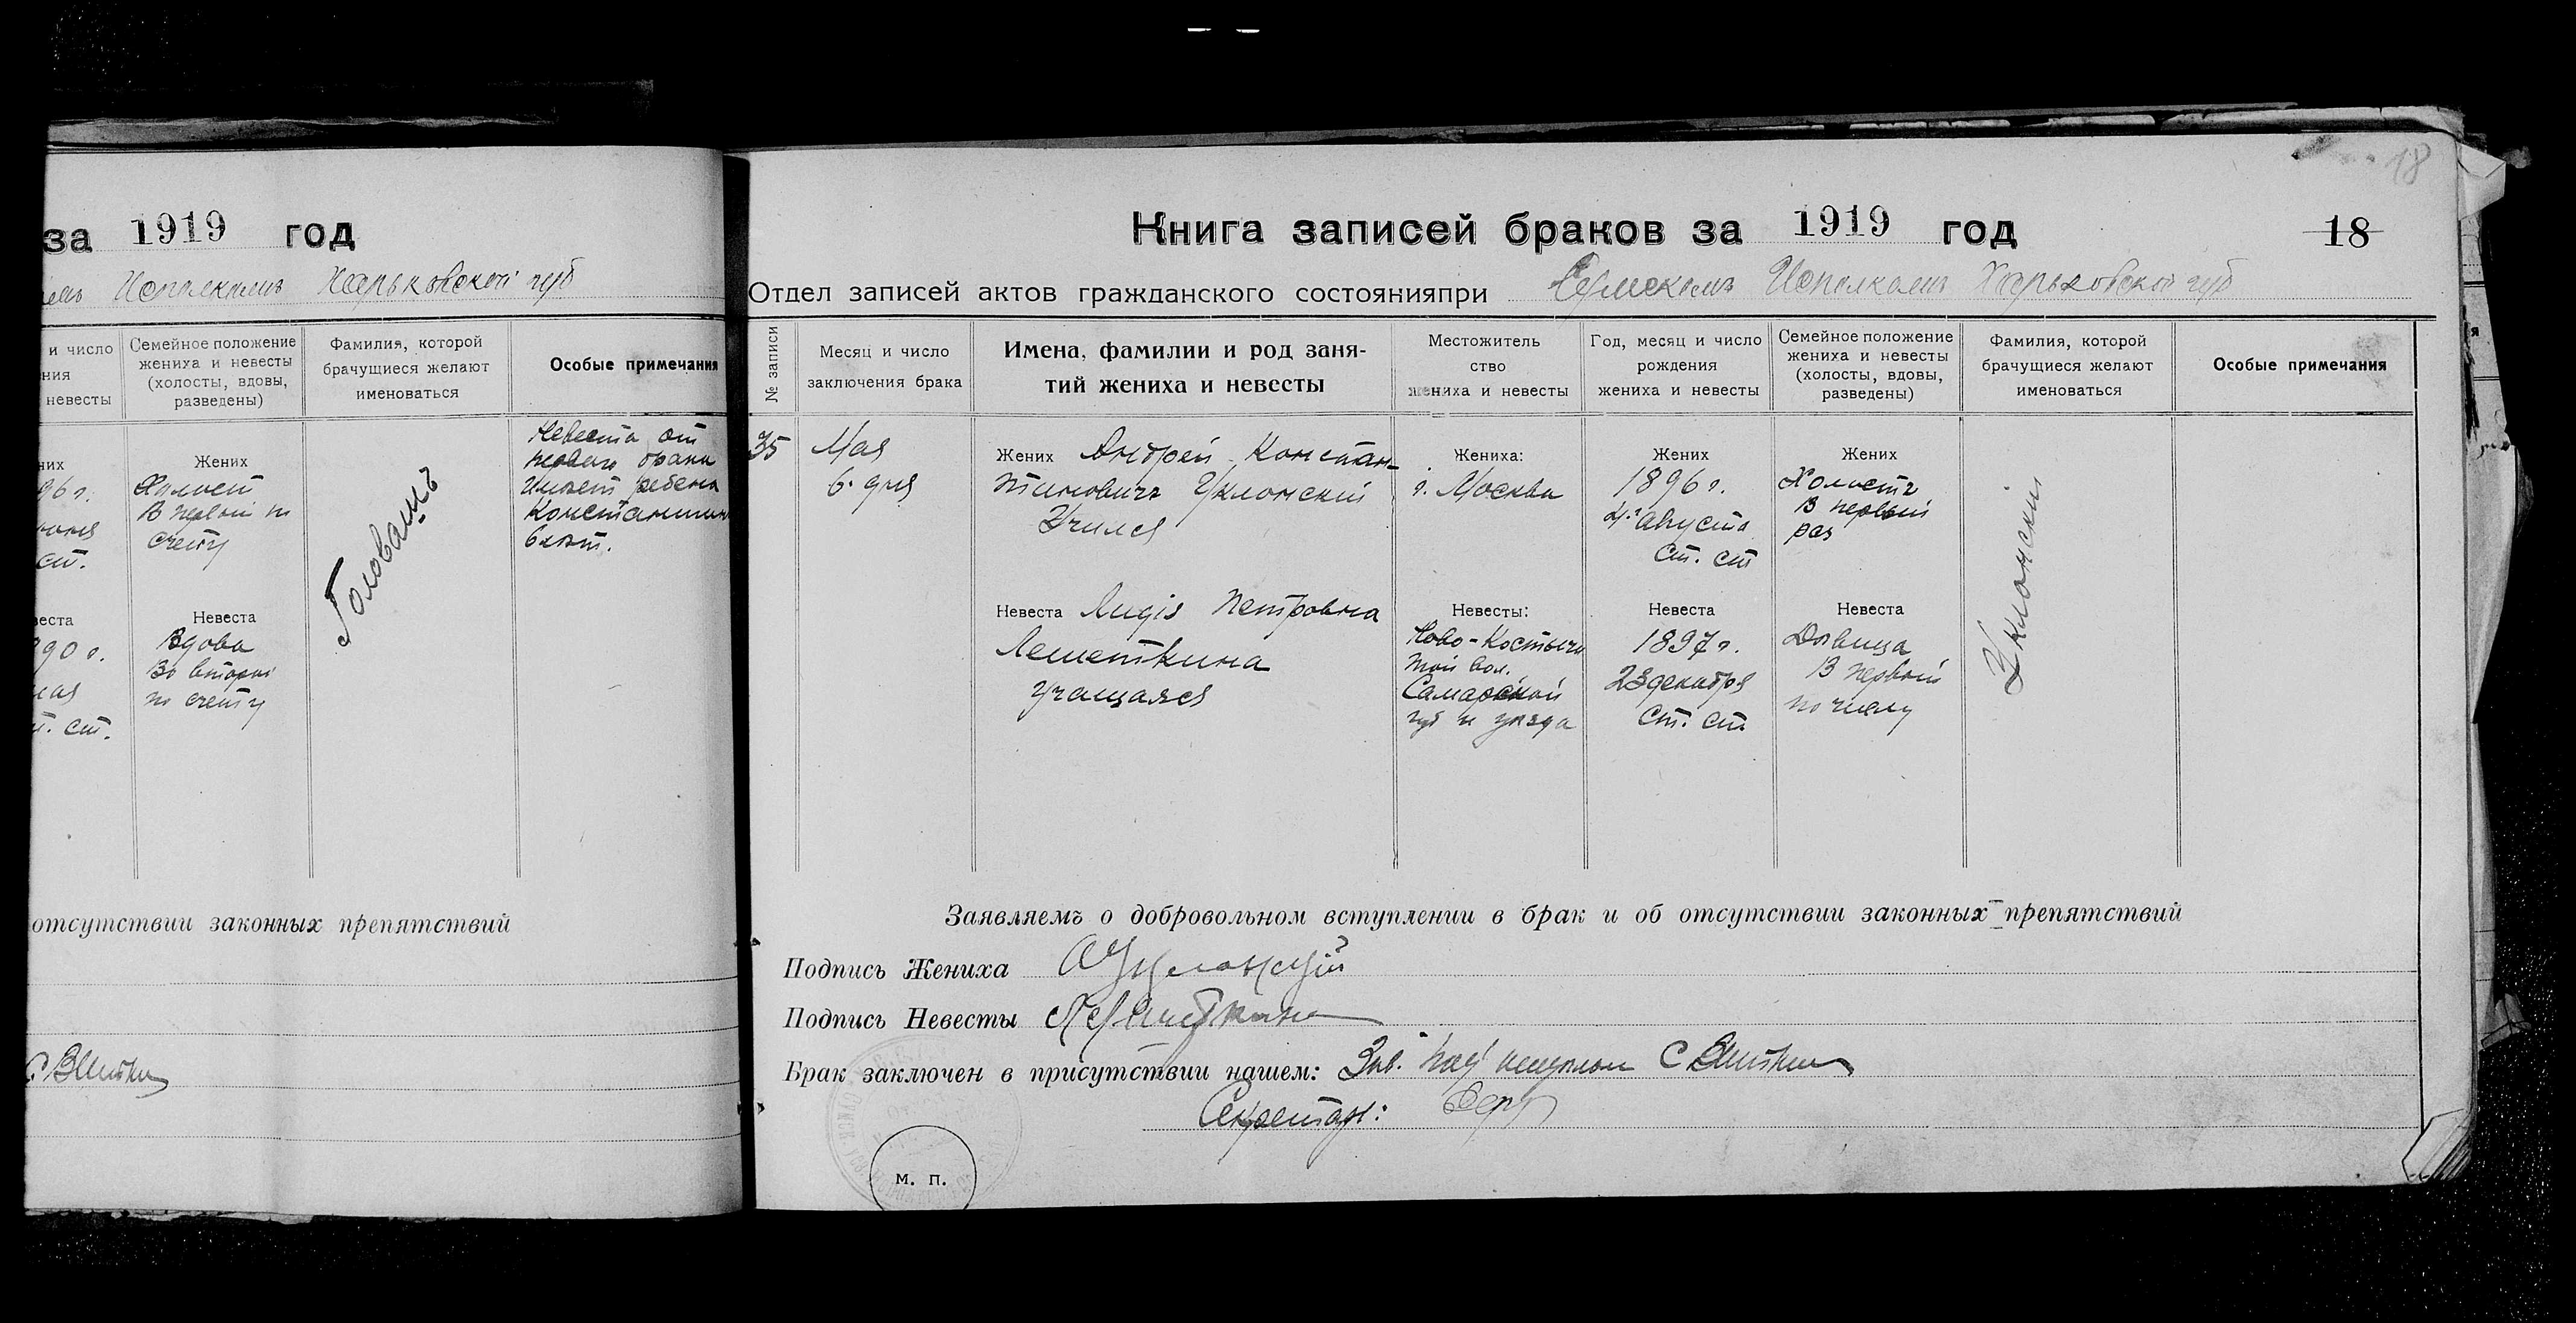 за 1919 год
Исполкомъ Харьковской губ
и число
ния
невесты
Семейное положение
жениха и невесты
(холосты, вдовы,
разведены)
Фамилия, которой
брачущиеся желают
именоваться
Особые примечания
них
96 г.
ст.
Жених
Холост
В первый по
счету
Головашъ
Невеста от
первого брака
имеет ребенка
Константина
6 лет.
веста
90 г.
мая
ст.
Невеста
Вдова
Во второй
по счету
отсутствии законных препятствий
18
Книга записей браков за 1919 год
18
Отдел записей актов гражданского состоянияпри Сумскомъ Исполкомъ Харьковской губ
№ записи
Месяц и число
заключения брака
Имена, фамилии и род заня-
тий жениха и невесты
Местожитель
ство
жениха и невесты
Год, месяц и число
рождения
жениха и невесты
Семейное положение
жениха и невесты
(холосты, вдовы,
разведены)
Фамилия, которой
брачущиеся желают
именоваться
Особые примечания
35
Мая
6. дня
Жених Андрей Констан-
тиновичъ Уклонский
Учился
Жениха:
г. Москва
Жених
1896 г.
4го августа
ст. ст
Жених
Холостъ
В первый
раз
Уклонский
Невеста Лидія Петровна
Лешеткина
учащаяся
Невесты:
Ново-Костыч
той вол.
Самарской
губ и уѣзда
Невеста
1897 г.
23 декабря
ст. ст.
Невеста
Дѣвица
В первый
по числу
Заявляемъ о добровольном вступлении в брак и об отсутствии законных препятствий
Подпись Жениха АУклонскій
Подпись Невесты Лешеткина
Брак заключен в присутствии нашем: Зав.
Секретарь:
м. п.